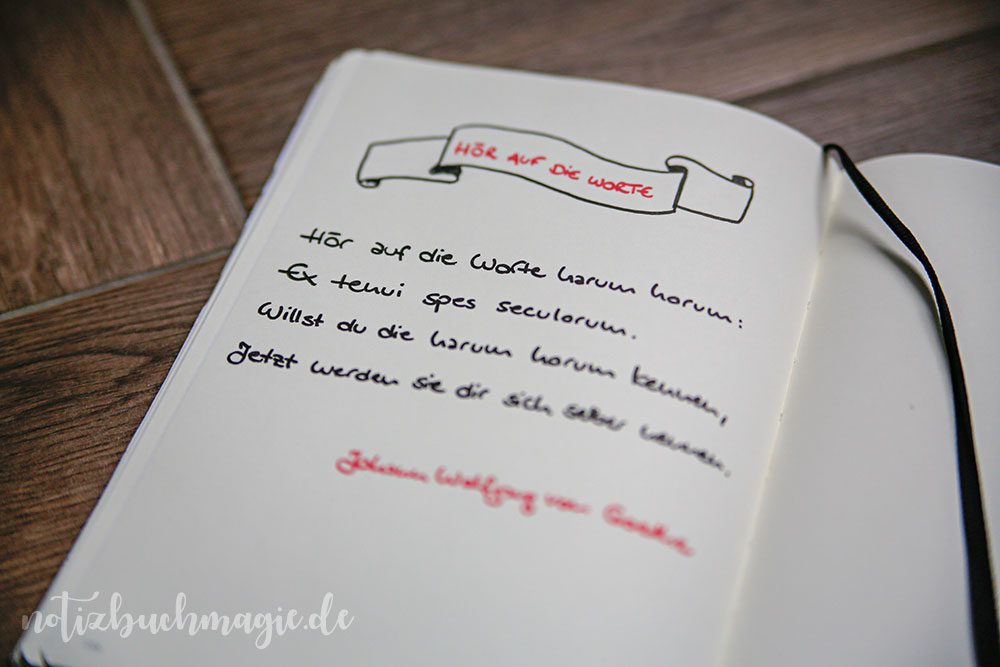 HÖR AUF DIE WORTE
Hör auf die Worte harum horum:
Ex tenui spes seculorum.
Willst du die harum horum kennen,
Jetzt werden sie dir sich selber nennen.
Johann Wolfgang von Goethe
notizbuchmagie.de